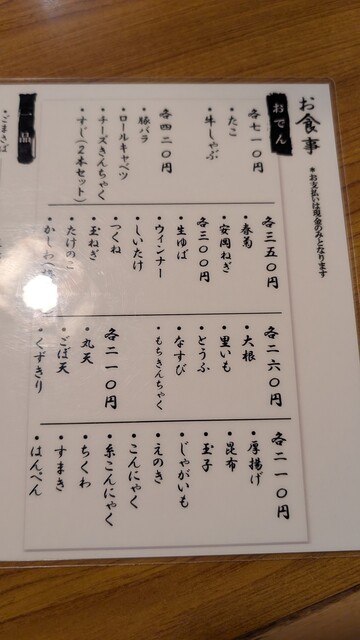 お食事
*お支払いは現金のみとなります
おでん
各七一〇円
・たこ
・牛しゃぶ
各四二〇円
・豚バラ
・ロールキャベツ
・チーズきんちゃく
・すじ(2本セット)
各三五〇円
・春菊
・安岡ねぎ
各三〇〇円
・生ゆば
・ウィンナー
・しいたけ
・つくね
・玉ねぎ
・たけのこ
・かしわ
各二六〇円
・大根
・里いも
・とうふ
・なすび
・もちきんちゃく
各二一〇円
・丸天
・ごぼ天
・くずきり
各二一〇円
・厚揚げ
・昆布
・玉子
・じゃがいも
・えのき
・こんにゃく
・糸こんにゃく
・ちくわ
・すまき
・はんぺん
一品
・ごまさば